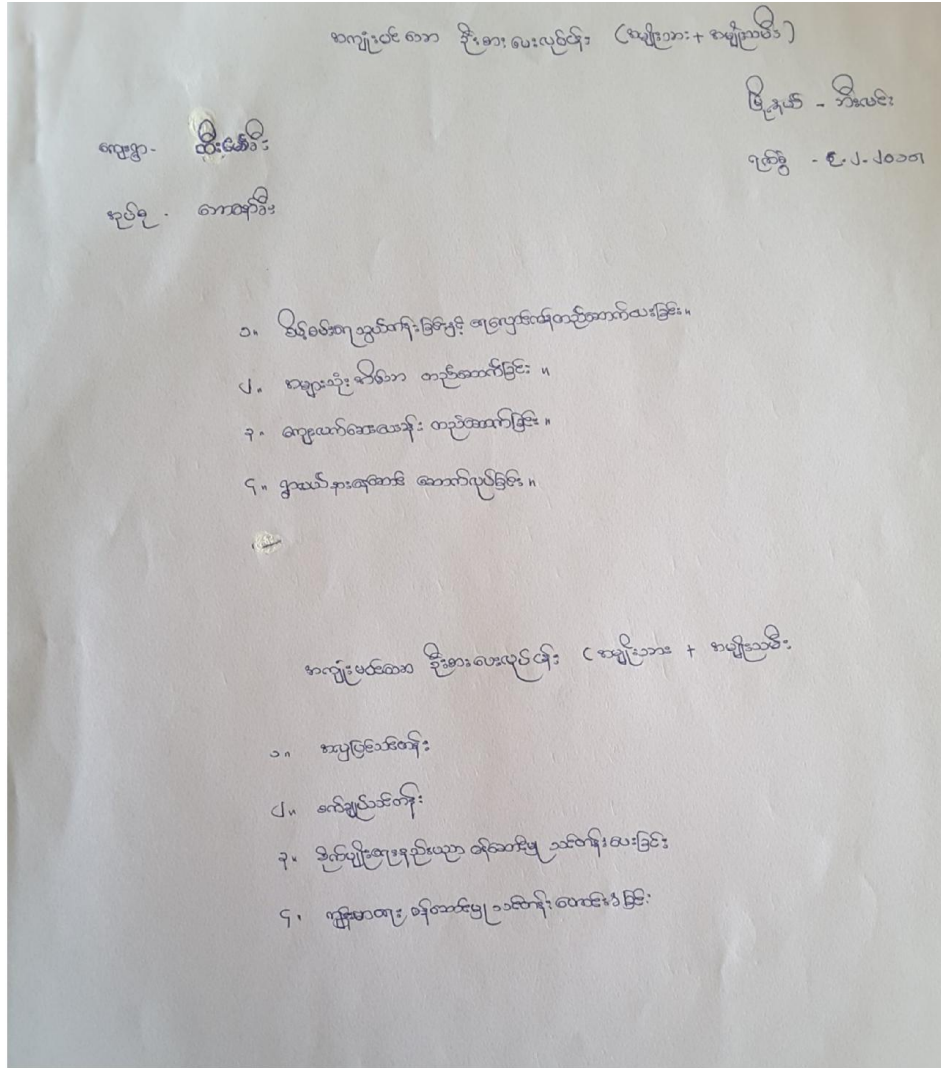 အကျုံးဝင်သော ဦးစားပေးလုပ်ငန်း (အမျိုးသား + အမျိုးသမီး)
မြို့နယ် - ဘီးလင်း
ကျေးရွာ - ထီးမော်ခီး
ရက်စွဲ - ၉.၂.၂၀၁၇
အုပ်စု - ဘောနော်ခီး
၁။ စိမ့်စမ်းရေသွယ်တန်းခြင်းနှင့် ရေလှောင်ကန်တည်ဆောက်ပေးခြင်း။
၂။ အများသုံးအိမ်သာ တည်ဆောက်ခြင်း။
၃။ ကျေးလက်ဆေးပေးခန်း တည်ဆောက်ခြင်း။
၄။ ရွာလယ်နားနေဆောင် ဆောက်လုပ်ခြင်း။
အကျုံးမဝင်သော ဦးစားပေးလုပ်ငန်း (အမျိုးသား + အမျိုးသမီး
၁။ အလှပြင်သင်တန်း
၂။ စက်ချုပ်သင်တန်း
၃။ စိုက်ပျိုးရေးနည်းပညာ ဝန်ဆောင်မှု သင်တန်းပေးခြင်း
၄။ ကျန်းမာရေး ဝန်ဆောင်မှု သင်တန်း တောင်းခံခြင်း